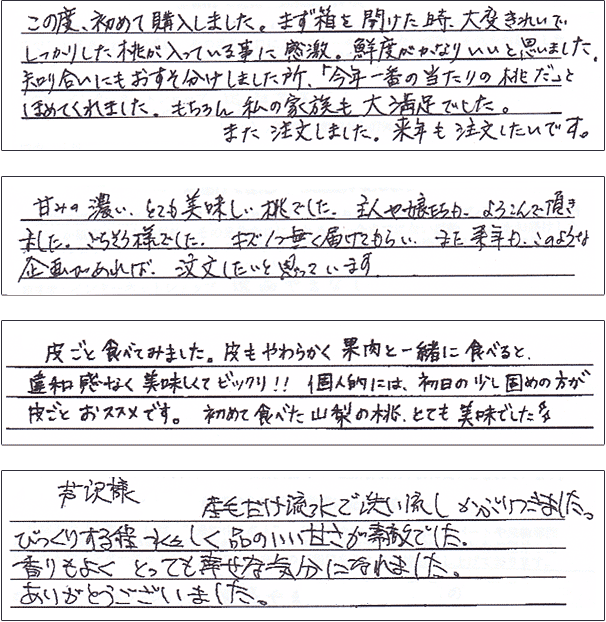 この度、初めて購入しました。まず箱を開けた時、大変きれいで
しっかりした桃が入っている事に感激。鮮度がかなりいいと思いました。
知り合いにもおすそ分けしました所、「今年一番の当たりの桃だ」と
ほめてくれました。もちろん私の家族も大満足でした。
また注文しました。来年も注文したいです。
甘みの濃い、とても美味しい桃でした。主人や娘たちが、よろこんで頂き
ました。ごちそう様でした。キズ1つ無く届けてもらい、また来年も、このような
企画があれば、注文したいと思っています。
皮ごと食べてみました。皮もやわらかく果肉と一緒に食べると、
違和感なく美味しくてビックリ!! 個人的には、初日の少し固めの方が
皮ごとおススメです。初めて食べた山梨の桃、とても美味でした
芦沢様 産毛だけ流水で洗い流しかぶりつきました。
びっくりする程みずみずしく品のいい甘さが素敵でした。
香りもよくとっても幸せな気分になれました。
ありがとうございました。